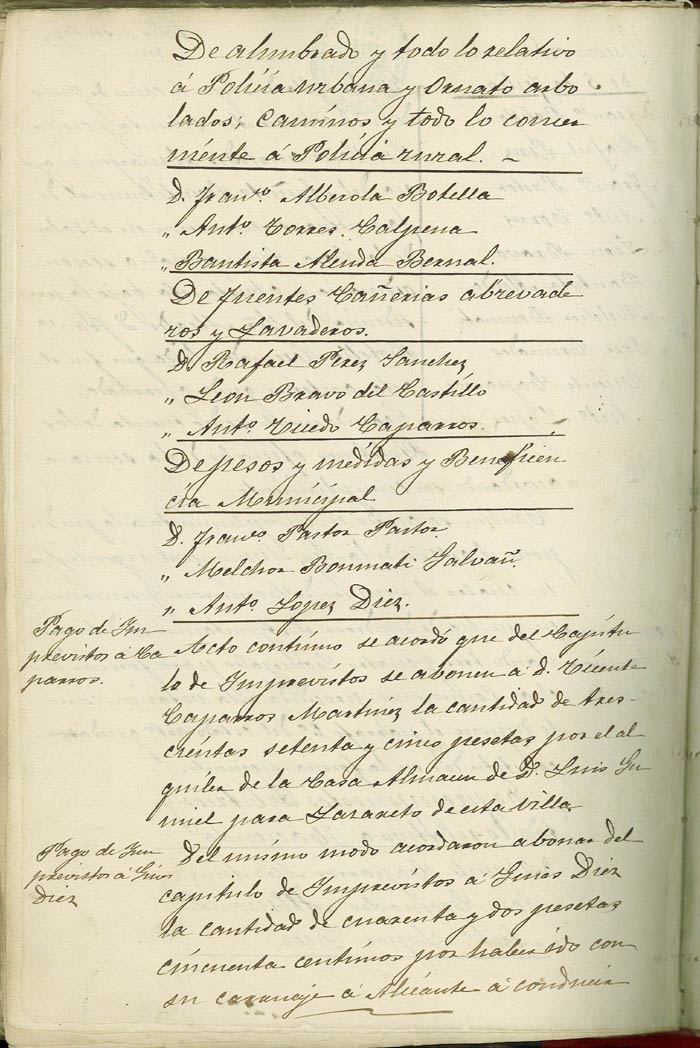 De alumbrado y todo lo relativo
á Policia urbana y Ornato arbo
lados; Caminos y todo lo concer
niente á Policia rural. –
D. Franco. Alberola Botella
" Anto. Torres Calpena
" Bautista Alenda Bernal.
De fuentes Cañerias abrevade
ros y Lavaderos.
D. Rafael Pérez Sanchez
" Leon Bravo del Castillo
" Anto. Caparros.
De pesos y medidas y Beneficen
cia Municipal
D. Franco. Pastor Pastor.
" Melchor Bonmati Galvañ.
" Anto. Lopez Diez.
Pago de Im
previstos á Ca
parros.
Acto continuo se acordó que del Capitu
lo de Imprevistos se abonen á D. Vicente
Caparros Martinez la cantidad de tres-
cientas setenta y cinco pesetas por el al
quiler de la Casa Almacen de D. Luis Gu
miel para Lazareto de esta villa
Pago de Im
previstos á Gines
Diez
Del mismo modo acordaron abonar del
capitulo de Imprevistos á Gines Diez
la cantidad de cuarenta y dos pesetas
cincuenta centimos por haber ido con
su carruaje á Alicante á conducir